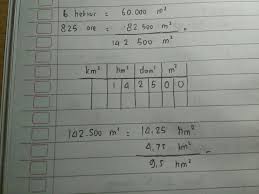 6 hektar = 60.000 m²
825 are = 82.500 m²
142 500 m²
km² hm² dam² m²
1 4 2 5 0 0
142.500 m² = 14,25 hm²
4,75 hm²
9,5 hm²